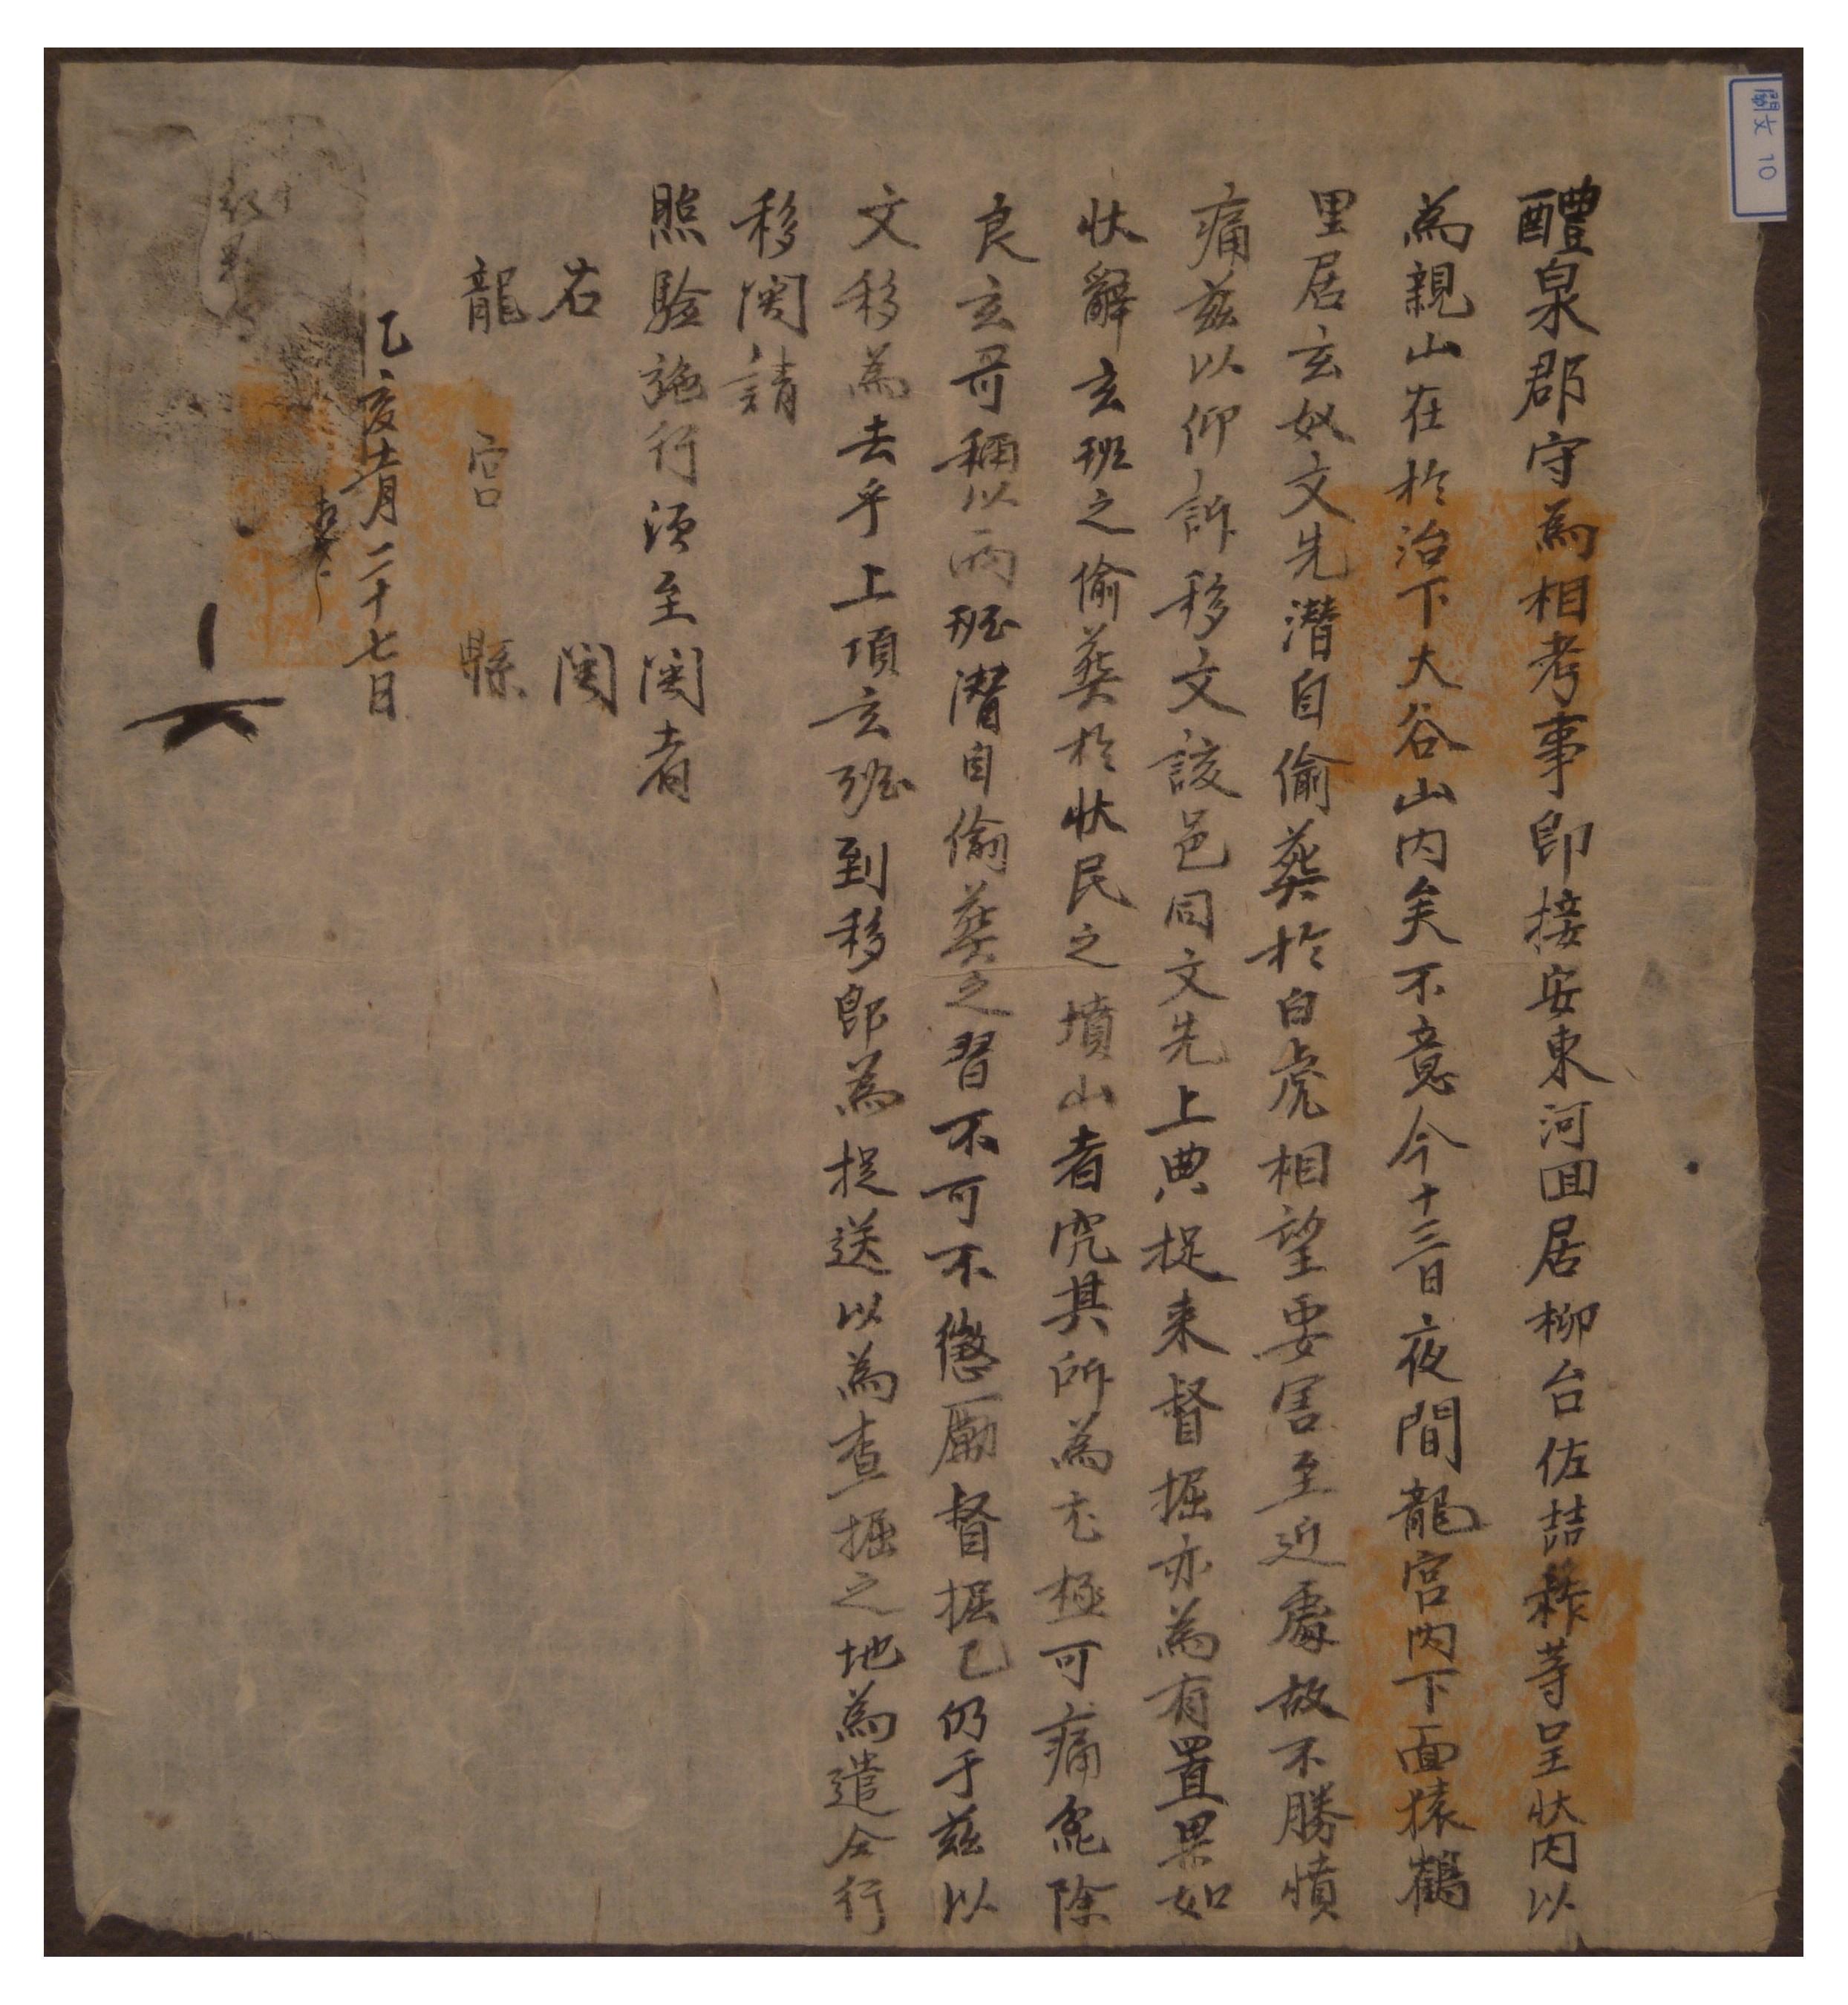 醴泉郡守爲相考事卽接安東河回居柳台佐喆祚等呈狀內以
爲親山在於治下大谷山內矣不意今十三日夜間龍宮內下面猿鶴
里居玄奴文先潛自偸葬於白虎相望要害至近處故不勝憤
痛玆以仰訴移文該邑同文先上典捉來督掘亦爲有置果如
狀辭玄班之偸葬於狀民之墳山者究其所爲尤極可痛矣除
良玄哥稱以兩班潛自偸葬之習不可不懲勵督掘乙仍于玆以
文移爲去乎上項玄班到移卽爲捉送以爲查掘之地爲遣合行
移關請
照驗施行須至關者
右關
龍宮縣
乙亥十一月二十七日
關文 10